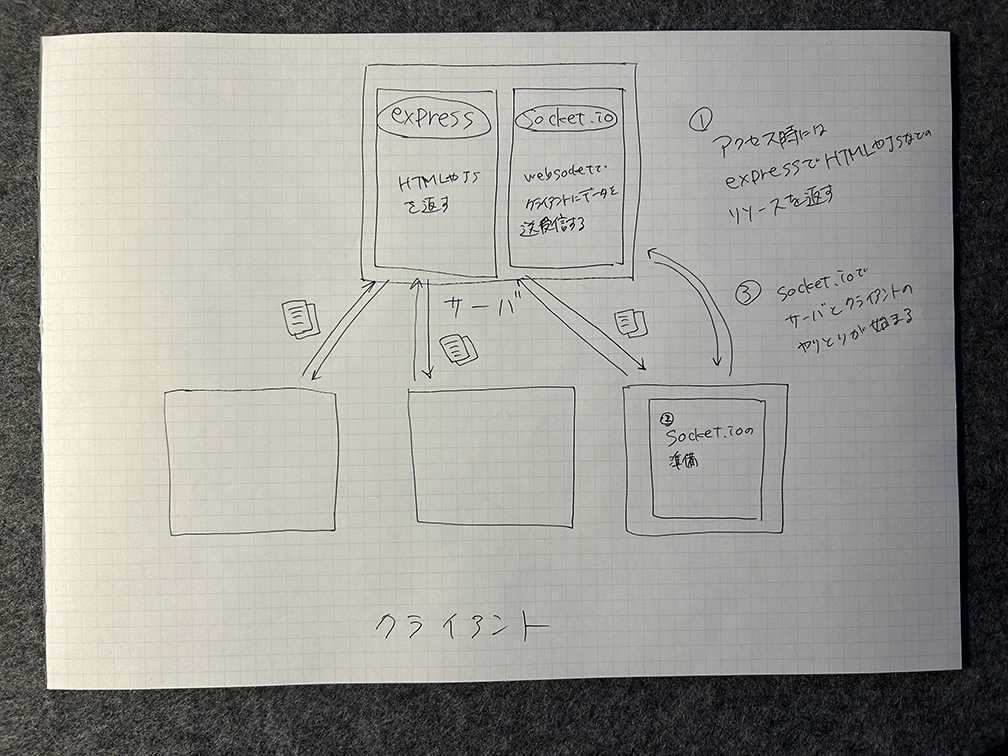 express
HTMLやJS
を返す
socket.io
websocketで
クライアントにデータを
送受信する
サーバ
①
アクセス時には
expressでHTMLやJSなどの
リソースを返す
③ socket.ioで
サーバとクライアントの
やりとりが始まる
②
socket.ioの
準備
クライアント